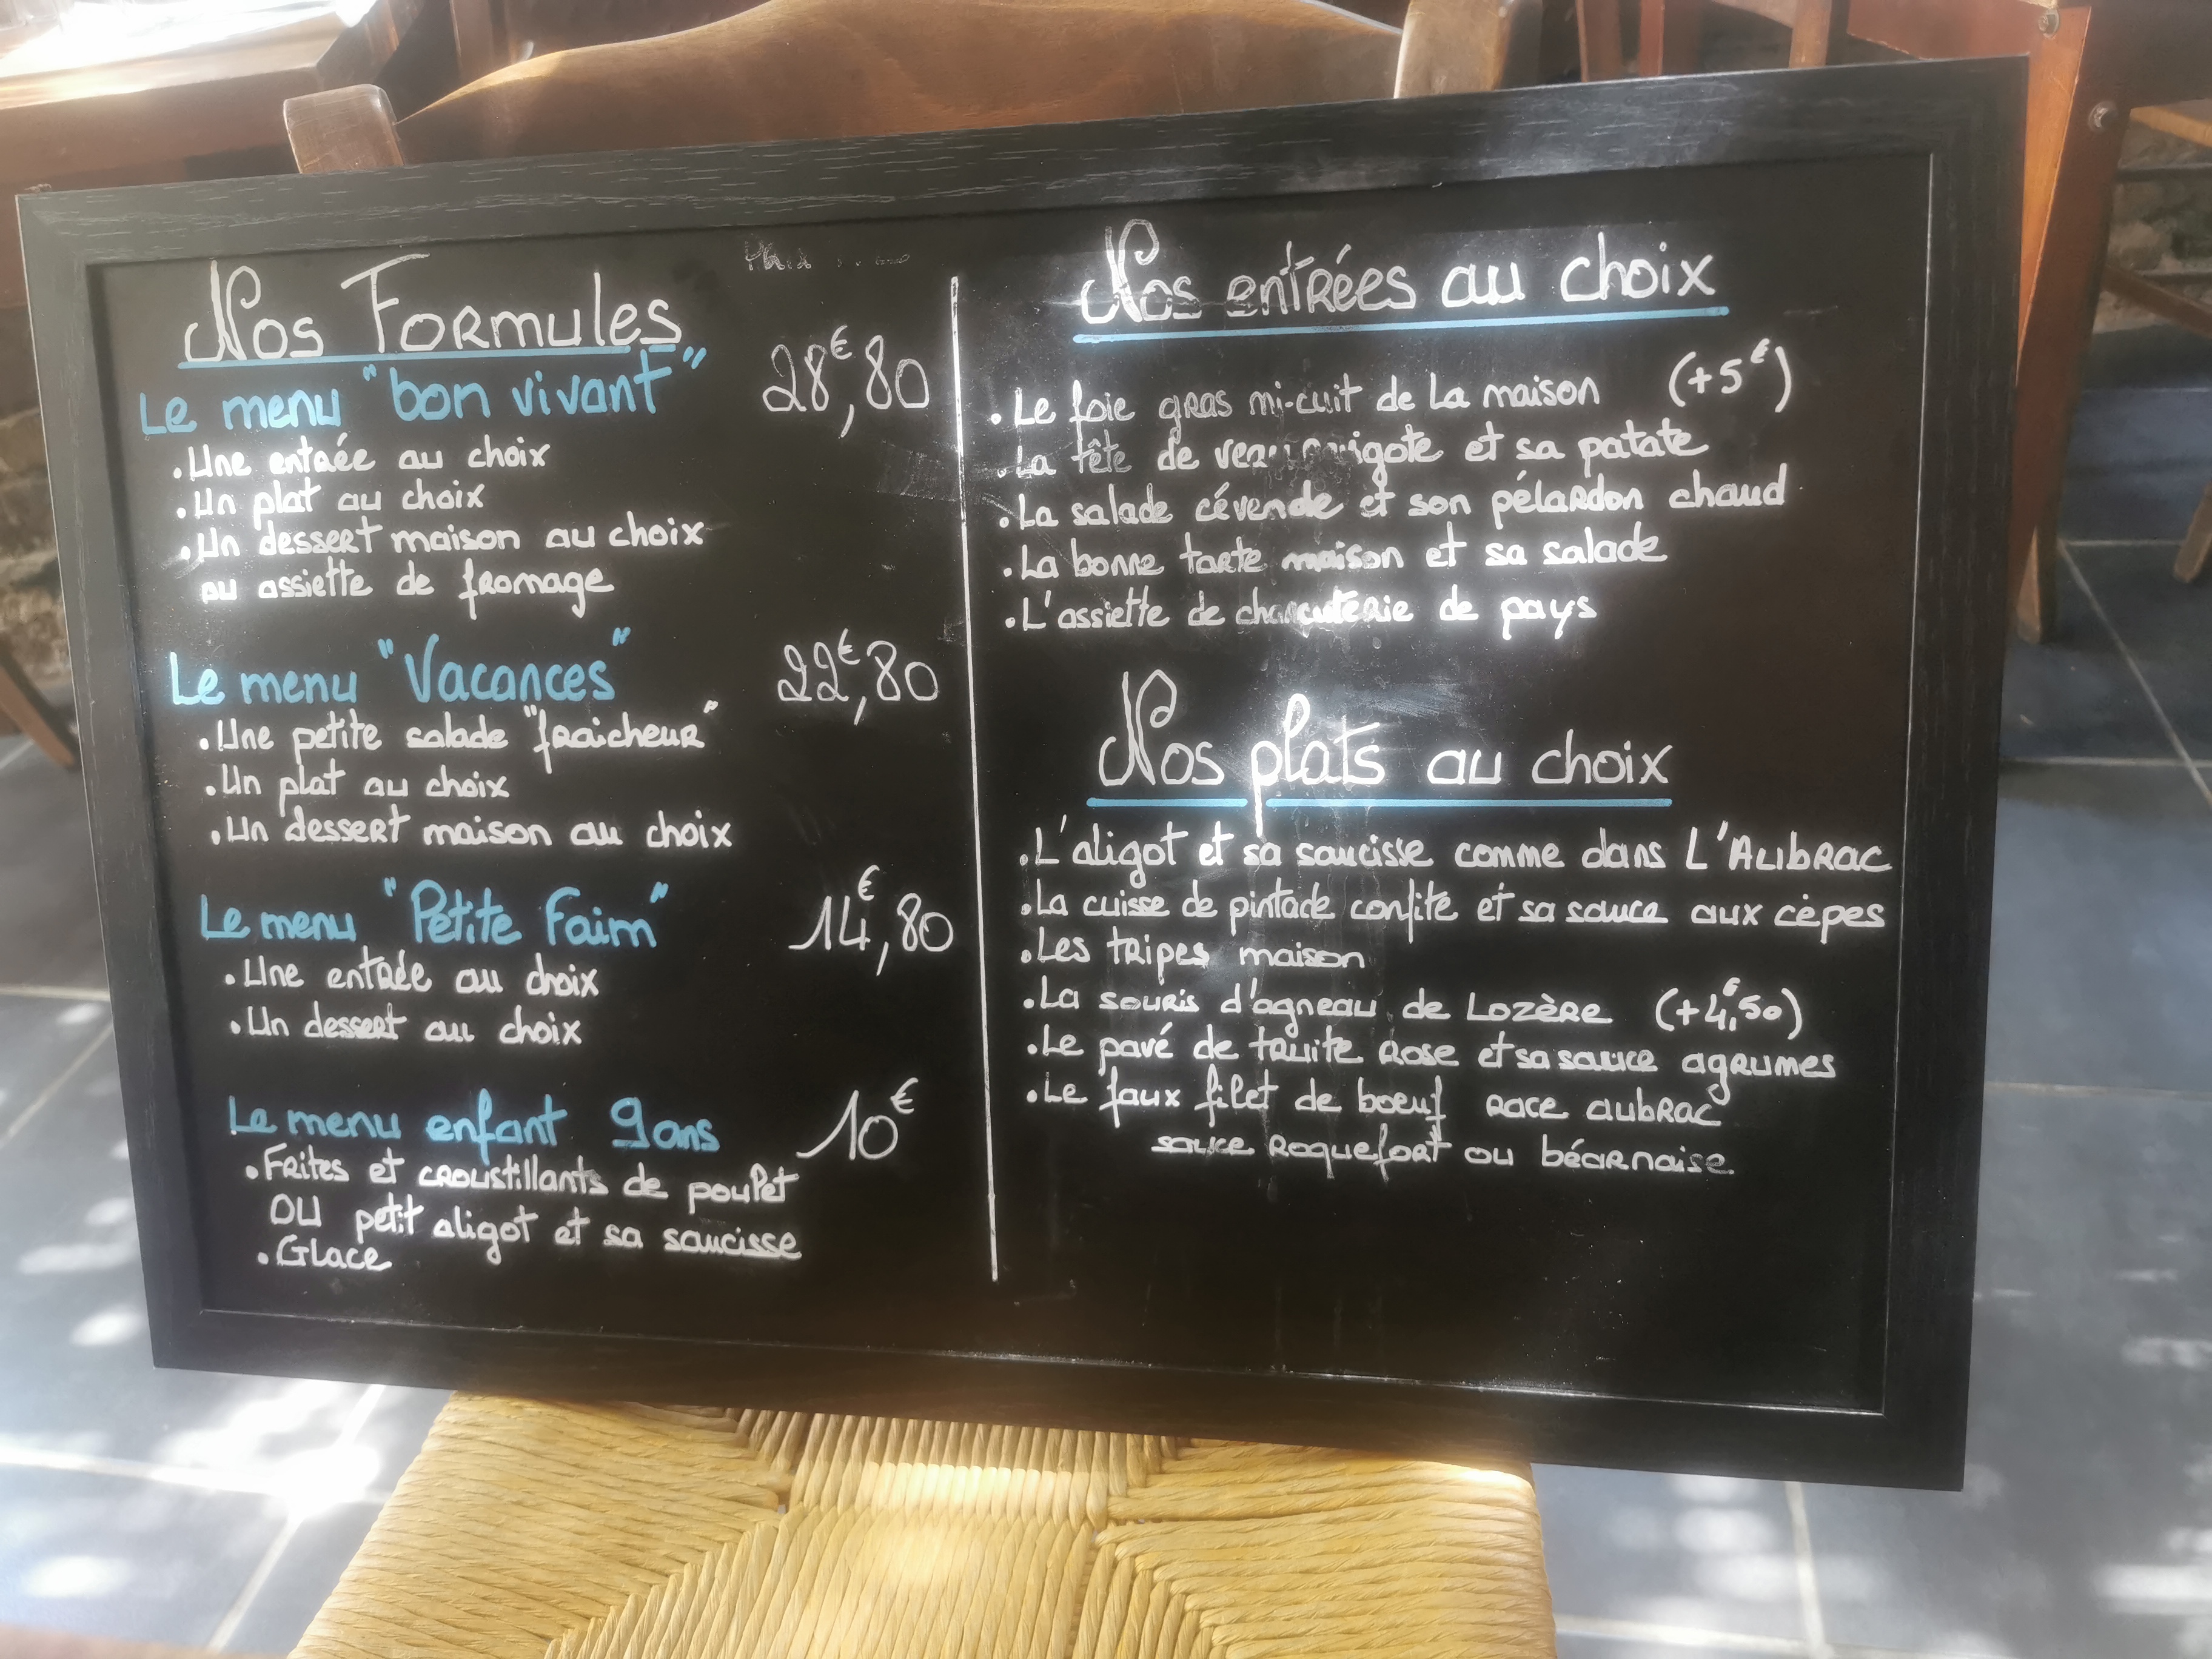 Nos Formules
Le menu "bon vivant" 28€,80
.Une entrée au choix
.Un plat au choix
.Un dessert maison au choix
ou assiette de fromage
Le menu "Vacances" 22€,80
.Une petite salade "fraicheur"
.Un plat au choix
.Un dessert maison au choix
Le menu "Petite Faim" 14€,80
.Une entrée au choix
.Un dessert au choix
Le menu enfant 9ans 10€
.Frites et croustillants de poulet
OU petit aligot et sa saucisse
.Glace
Nos entrées au choix
.Le foie gras mi-cuit de La maison (+5€)
.La tête de veau et sa patate
.La salade cévenole et son pélardon chaud
.La bonne tarte maison et sa salade
.L'assiette de charcuterie de pays
Nos plats au choix
.L'aligot et sa saucisse comme dans L'Aubrac
.La cuisse de pintade confite et sa sauce aux cèpes
.Les tripes maison
.La souris d'agneau de Lozère (+4€,50)
.Le pavé de truite rose et sa sauce agrumes
.Le faux filet de boeuf race aubrac
sauce Roquefort ou béarnaise